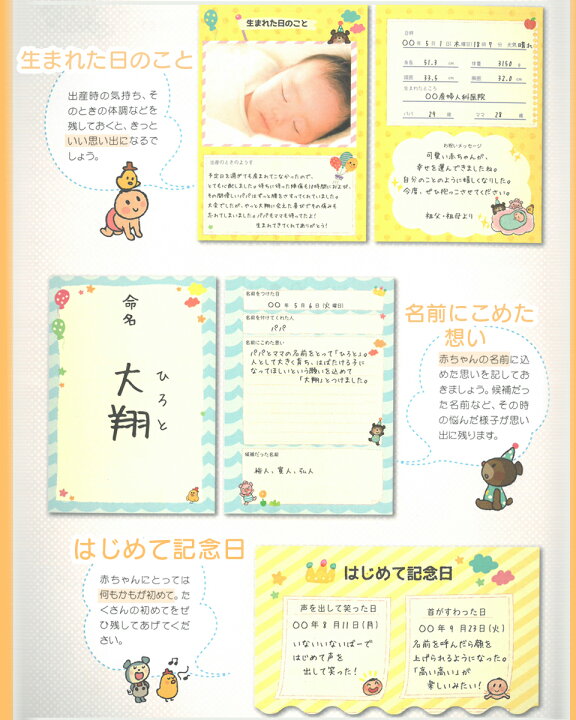 生まれた日のこと
出産時の気持ち、そ
のときの体調などを
残しておくと、きっと
いい思い出になるで
しょう。
生まれた日のこと
出産のときのようす
予定日を過ぎても産まれてこなかったので、
とても心配しました。待ちに待った陣痛も16時間におよび、
その間優しいパパはずっと腰をさすってくれていました。
大変でしたが、やっと大翔に会えた喜びでその痛みも
忘れてしまいました。パパもママも待ってたよ!
生まれてきてくれてありがとう!
日時
〇〇年5月1日(木曜日)18時9分 天気 晴れ
身長 51.3 cm 体重 3150 g
頭囲 33.5 cm 胸囲 32.0 cm
生まれたところ
〇〇産婦人科医院
パパ 29 歳 ママ 28 歳
お祝いメッセージ
可愛い赤ちゃんが、
幸せを運んできましたね。
自分のことのように嬉しくなりした。
今度、ぜひ抱っこさせてください。
祖父・祖母より
命名
大翔
ひろと
名前をつけた日
〇〇年5月6日(火曜日)
名前を付けてくれた人
パパ
名前にこめた想い
パパとママの名前をとって「ひろと」。
人として大きく育ち、はばたける子に
なってほしいという願いを込めて
「大翔」とつけました。
候補だった名前
裕人、寛人、弘人
名前にこめた
想い
赤ちゃんの名前に込
めた思いを記してお
きましょう。候補だっ
た名前など、その時
の悩んだ様子が思い
出に残ります。
はじめて記念日
赤ちゃんにとっては
何もかもが初めて。た
くさんの初めてをぜ
ひ残してあげてくだ
さい。
はじめて記念日
声を出して笑った日
〇〇年8月11日(月)
いないいないばーで
はじめて声を
出して笑った!
首がすわった日
〇〇年9月23日(火)
名前を呼んだら顔を
上げられるようになった。
「高い高い」が
楽しいみたい!